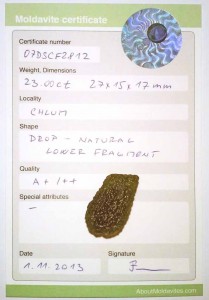 Moldavite certificate
Certificate number
07D3CF2812
Weight, Dimensions
23.00ct 27x15x17mm
Locality
CHLUM
Shape
DROP - NATURAL
LOWER FRAGMENT
Quality
A+/++
Special attributes
-
Date
Signature
1.11.2013
AboutMoldavites.com